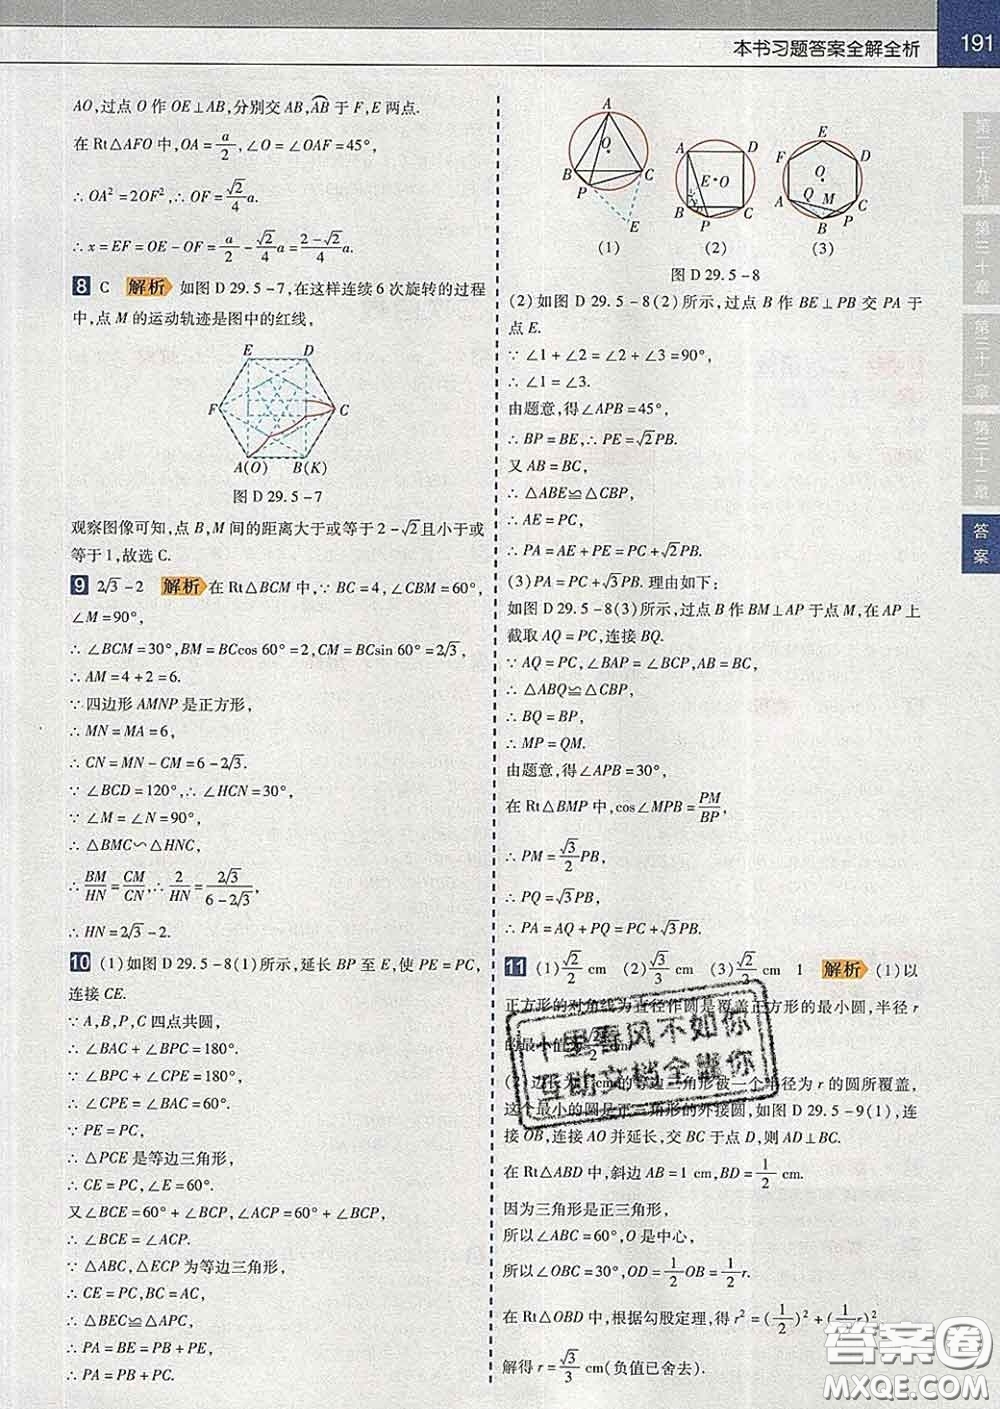 本书习题答案全解全析
191
AO,过点 O 作 OE⊥AB,分别交 AB,⌒AB 于 F,E 两点.
在 Rt△AFO 中,OA=a/2,∠O=∠OAF=45°,
∴ OA²=2OF²,∴ OF=√2/4 a.
∴ x=EF=OE-OF=a/2-√2/4 a=(2-√2)/4 a.
8 C 解析 如图 D 29.5-7,在这样连续 6 次旋转的过程
中,点 M 的运动轨迹是图中的红线,
E D
F C
A(O) B(K)
图 D 29.5-7
观察图像可知,点 B,M 间的距离大于或等于 2-√2且小于或
等于 1,故选 C.
9 2√3-2 解析 在 Rt△BCM 中,∵ BC=4,∠CBM=60°,
∠M=90°,
∴ ∠BCM=30°,BM=BCcos 60°=2,CM=BCsin 60°=2√3,
∴ AM=4+2=6.
∵ 四边形 AMNP 是正方形,
∴ MN=MA=6,
∴ CN=MN-CM=6-2√3.
∵ ∠BCD=120°,∴ ∠HCN=30°,
∵ ∠M=∠N=90°,
∴ △BMC∽△HNC,
∴ BM/HN=CM/CN,∴ 2/HN=2√3/(6-2√3),
∴ HN=2√3-2.
10 (1)如图 D 29.5-8(1)所示,延长 BP 至 E,使 PE=PC,
连接 CE.
∵ A,B,P,C 四点共圆,
∴ ∠BAC+∠BPC=180°.
∵ ∠BPC+∠CPE=180°,
∴ ∠CPE=∠BAC=60°.
∵ PE=PC,
∴ △PCE 是等边三角形,
∴ CE=PC,∠E=60°.
又∠BCE=60°+∠BCP,∠ACP=60°+∠BCP,
∴ ∠BCE=∠ACP.
∵ △ABC,△ECP 为等边三角形,
∴ CE=PC,BC=AC,
∴ △BEC≌△APC,
∴ PA=BE=PB+PE,
∴ PA=PB+PC.
A O B C P E
(1)
A D E O B C P
(2)
E F D O A Q M C B P
(3)
图 D 29.5-8
(2)如图 D 29.5-8(2)所示,过点 B 作 BE⊥PB 交 PA 于
点 E.
∵ ∠1+∠2=∠2+∠3=90°,
∴ ∠1=∠3.
由题意,得∠APB=45°,
∴ BP=BE,∴ PE=√2PB.
又 AB=BC,
∴ △ABE≌△CBP,
∴ AE=PC,
∴ PA=AE+PE=PC+√2PB.
(3)PA=PC+√3PB. 理由如下:
如图 D 29.5-8(3)所示,过点 B 作 BM⊥AP 于点 M,在 AP 上
截取 AQ=PC,连接 BQ.
∵ AQ=PC,∠BAP=∠BCP,AB=BC,
∴ △ABQ≌△CBP,
∴ BQ=BP,
∴ MP=QM.
由题意,得∠APB=30°,
在 Rt△BMP 中,cos∠MPB=PM/BP,
∴ PM=√3/2 PB,
∴ PQ=√3PB,
∴ PA=AQ+PQ=PC+√3PB.
11 (1)√2/2 cm (2)√3/3 cm (3)√2/2 cm 1 解析 (1)以
正方形的对角线为直径作圆是覆盖正方形的最小圆,半径 r
的最小值为√2/2 cm
(2)边长为1 cm的等边三角形被一个半径为 r 的圆所覆盖,
这个最小的圆是正三角形的外接圆,如图 D 29.5-9(1),连
接 OB,连接 AO 并延长,交 BC 于点 D,则 AD⊥BC.
在 Rt△ABD 中,斜边 AB=1 cm,BD=1/2 cm.
因为三角形是正三角形,
所以∠OBC=60°,O 是中心,
所以∠OBC=30°,OD=1/2 OB=1/2 r.
在 Rt△OBD 中,根据勾股定理,得 r²=(1/2)²+(1/2 r)²
解得 r=√3/3 cm(负值已舍去).
第二十九章
第三十章
第三十一章
第三十二章
答案
十里春风不如你
互助文档全靠你
答案圈
MXQE.COM